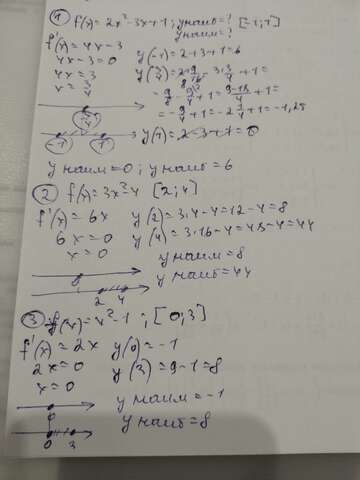 ① f(x) = 2x² - 3x + 1; y наиб = ? [-1; 1]
y наим = ?
f'(x) = 4x - 3
4x - 3 = 0
4x = 3
x = 3/4
y(-1) = 2 + 3 + 1 = 6
y(3/4) = 2·9/16 - 3·3/4 + 1 =
= 9/8 - 9/4 + 1 = (9-18)/8 + 1 =
3/4
-1 1
y(1) = 2 - 3 + 1 = 0
y наим = 0; y наиб = 6
② f(x) = 3x² - 4 [2; 4]
f'(x) = 6x
6x = 0
x = 0
y(2) = 3·4 - 4 = 12 - 4 = 8
y(4) = 3·16 - 4 = 48 - 4 = 44
y наим = 8
y наиб = 44
0
2 4
③ f(x) = x² - 1; [0; 3]
f'(x) = 2x
2x = 0
x = 0
y(0) = -1
y(3) = 9 - 1 = 8
y наим = -1
y наиб = 8
0
0 3